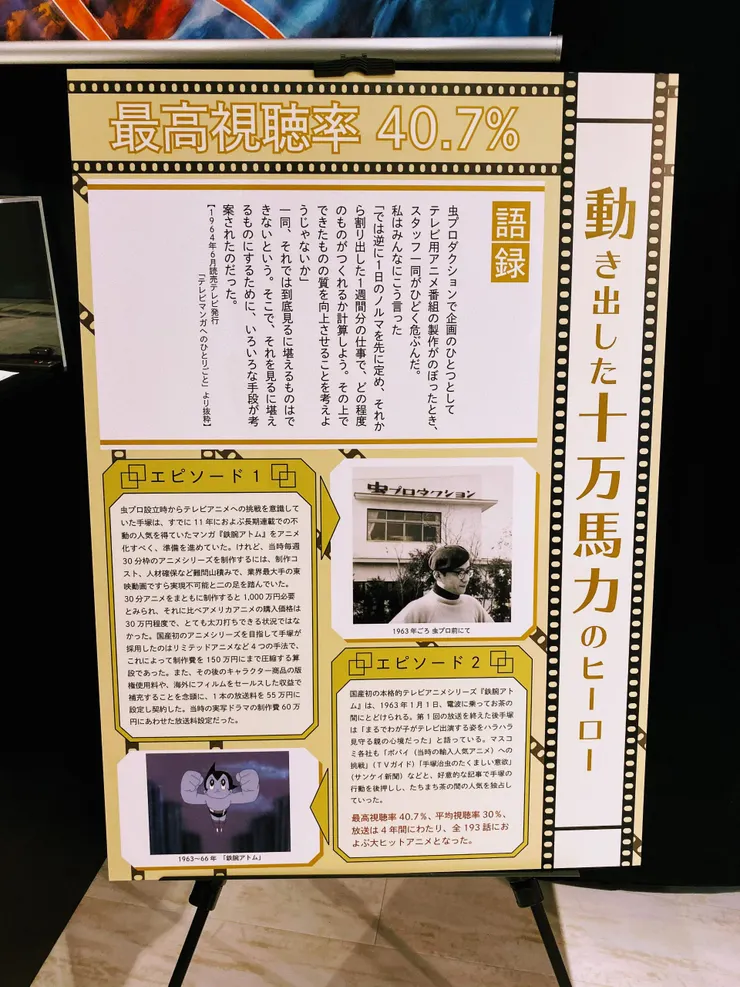 最高視聴率 40.7%
動き出した十万馬力のヒーロー
語録
虫プロダクションで企画のひとつとして
テレビ用アニメ番組の製作がのぼったとき、
スタッフ一同がひどく危ぶんだ。
私はみんなにこう言った
「では逆に1日のノルマを先に定め、それか
ら割り出した1週間分の仕事で、どの程度
のものがつくれるか計算しよう。その上で
できたものの質を向上させることを考えよ
うじゃないか」
一同、それでは到底見るに堪えるものはで
きないという。そこで、それを見るに堪え
るものにするために、いろいろな手段が考
案されたのだった。
【1964年6月読売テレビ発行
「テレビマンガへのひとりごと」より抜粋】
エピソード 1
虫プロ設立時からテレビアニメへの挑戦を意識して
いた手塚は、すでに 11 年におよぶ長期連載での不
動の人気を得ていたマンガ『鉄腕アトム』をアニメ
化すべく、準備を進めていた。けれど、当時毎週
30 分枠のアニメシリーズを制作するには、制作コ
スト、人材確保など難問山積みで、業界最大手の東
映動画ですら実現不可能と二の足を踏んでいた。
30 分アニメをまともに制作すると 1,000 万円必要
とみられ、それに比べアメリカアニメの購入価格は
30 万円程度で、とても太刀打ちできる状況ではな
かった。国産初のアニメシリーズを目指して手塚が
採用したのはリミテッドアニメなど 4 つの手法で、
これによって制作費を 150 万円にまで圧縮する算
段であった。また、その後のキャラクター商品の版
権使用料や、海外にフィルムをセールスした収益で
補充することを念頭に、1 本の放送料を 55 万円に
設定し契約した。当時の実写ドラマの制作費 60 万
円にあわせた放送料設定だった。
虫プロダクション
1963 年ごろ 虫プロ前にて
エピソード 2
国産初の本格的テレビアニメシリーズ『鉄腕アト
ム』は、1963 年 1 月 1 日、電波に乗ってお茶の
間にとどけられる。第 1 回の放送を終えた後手塚
は「まるでわが子がテレビ出演する姿をハラハラ
見守る親の心境だった」と語っている。マスコ
ミ各社も「ポパイ(当時の輸入人気アニメ)への
挑戦」(TVガイド)「手塚治虫のたくましい意欲」
(サンケイ新聞)などと、好意的な記事で手塚の
行動を後押しし、たちまち茶の間の人気を独占し
ていった。
最高視聴率 40.7%、平均視聴率 30%、
放送は 4 年間にわたり、全 193 話にお
よぶ大ヒットアニメとなった。
1963〜66 年 「鉄腕アトム」